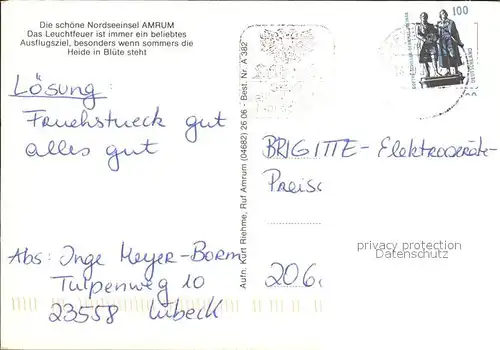 Die schöne Nordseeinsel AMRUM
Das Leuchtfeuer ist immer ein beliebtes
Ausflugsziel, besonders wenn sommers die
Heide in Blüte steht
Lösung:
Fruehstueck gut
alles gut
Abs: Inge Meyer-Borm
Tulpenweg 10
23558 Lübeck
Aufn. Kurt Riehme, Ruf Amrum (04682) 26 06 - Best. Nr. A 382
100
DEUTSCHLAND
BRIGITTE- Elektrogeräte-
Preisc
206
privacy protection
Datenschutz